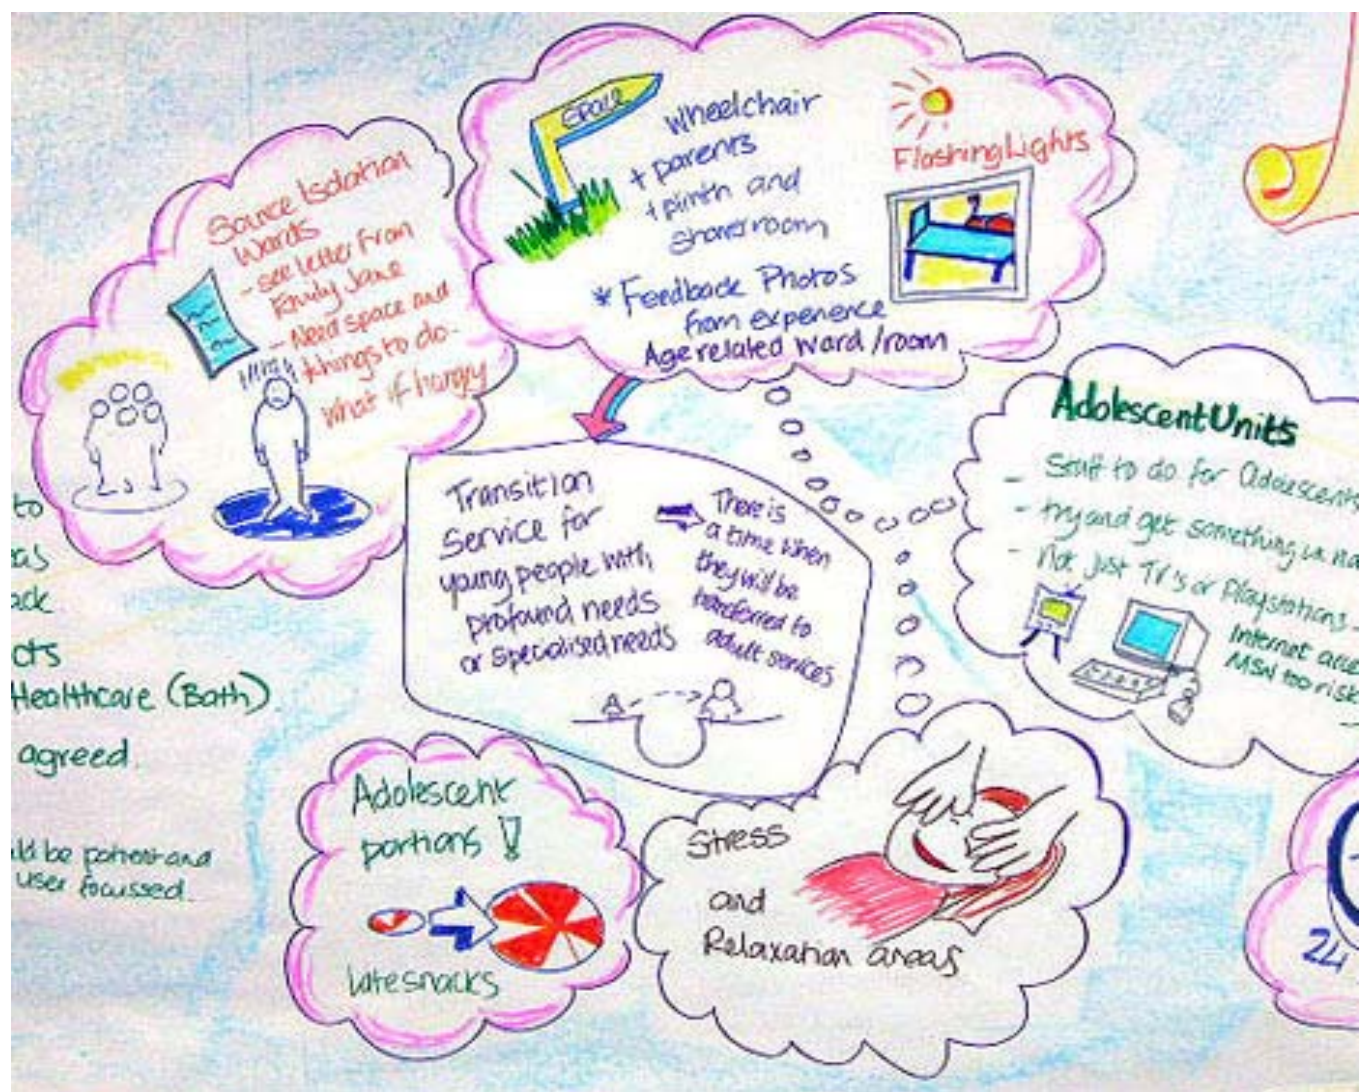 Source Isolation
Wards
- see letter from
Emily Jane
- Need space and
things to do.
What if hungry
SPACE
Wheelchair
+ parents
+ plinth and
shower room
Flashing Lights
* Feedback Photos
from experience
Age related ward/room
Adolescent Units
- Stuff to do for Adolescents
- try and get something in
- Not just TV's or Playstations -
Internet
MSN too risk
Transition
Service for
young people with
profound needs
or specialised needs
There is
a time when
they will be
transferred to
adult services
A
to
as
ack
cts
Healthcare (Bath)
agreed.
ld be patient and
user focussed.
Adolescent
portions !
late snacks
Stress
and
Relaxation areas
24